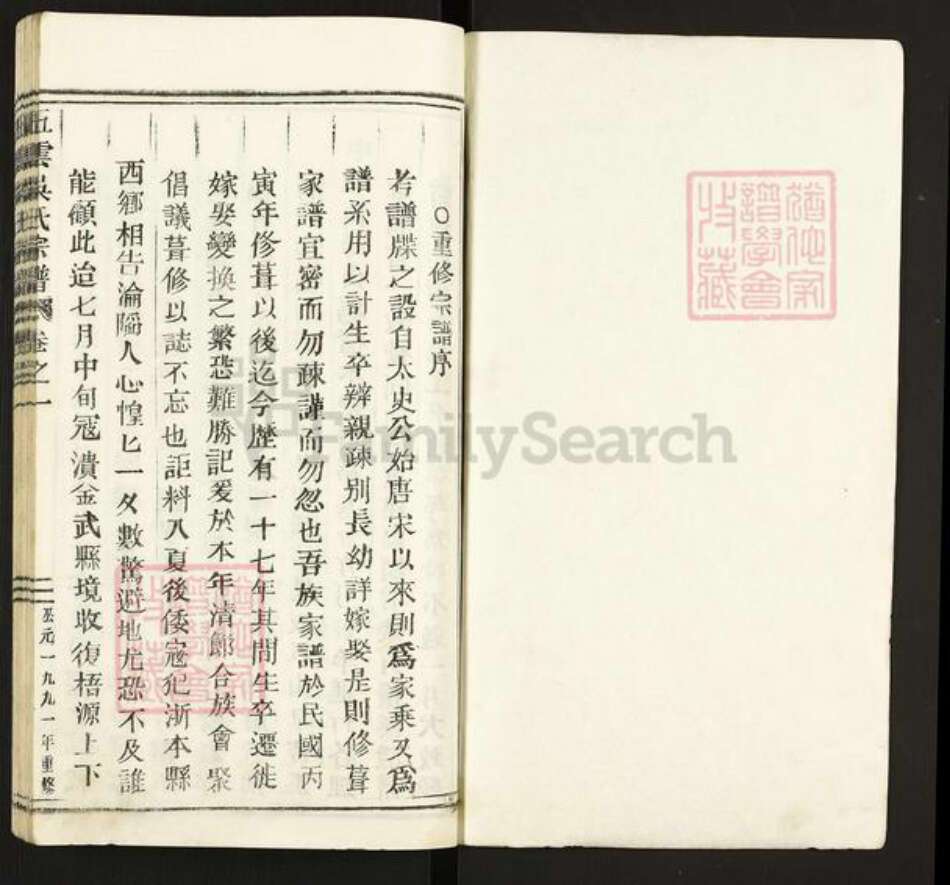 ○重修宗譜序
考譜牒之設自太史公始唐宋以來則爲家乘又爲
譜系用以計生卒辨親疎别長幼詳嫁娶是則修葺
家譜宜密而勿疎謹而勿忽也吾族家譜於民國丙
寅年修葺以後迄今歷有一十七年其間生卒遷徙
嫁娶變換之繁恐難勝記爰於本年清節合族會聚
倡議葺修以誌不忘也詎料入夏後倭寇犯浙本縣
西鄉相告淪陷人心惶匕一夕數驚避地尤恐不及誰
能顧此迨七月中旬寇潰金武縣境收復梧源上下
五雲吳氏宗譜 卷之一
公元一九九一年重修
猶他家
譜學會
收藏
FamilySearch